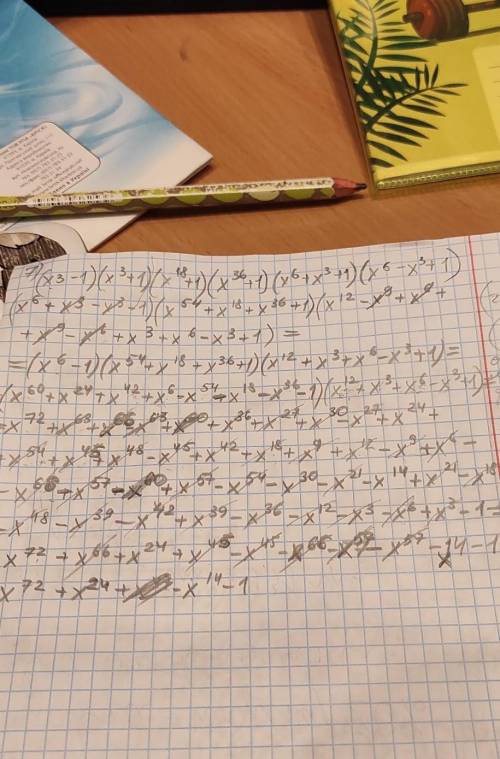 (x³-1)(x³+1)(x¹⁸+1)(x³⁶+1)(x⁶+x³+1)(x⁶-x³+1)
(x⁶+x³-x³-1)(x⁵⁴+x¹⁸+x³⁶+1)(x¹²-x⁹+x⁹+
+x⁹-x⁶+x³+x⁶-x³+1) =
=(x⁶-1)(x⁵⁴+x¹⁸+x³⁶+1)(x¹²+x³+x⁶-x³+1)=
(x⁶⁰+x²⁴+x⁴²+x⁶-x⁵⁴-x¹⁸-x³⁶-1)(x¹²+x³+x⁶-x³+1)=
x⁷²+x⁶³+x⁶⁶ x⁶³+x⁶⁰+x³⁶+x²⁷+x³⁰-x²⁷+x²⁴+
+x⁵⁴+x⁴⁵+x⁴⁸-x⁴⁵+x⁴²+x¹⁸+x⁹+x¹²-x⁹+x⁶-
+x⁵⁷-x⁶⁰+x⁵⁷-x⁵⁴-x³⁰-x²¹-x¹⁴+x²¹-x¹⁸
-x⁴⁸-x³⁹-x⁴²+x³⁹-x³⁶-x¹²-x³-x⁶+x³-1=
x⁷²+x⁶⁶+x²⁴+x⁴⁵-x⁴⁵-x⁶⁶-x⁵⁷-x¹⁴-1
x⁷²+x²⁴+ -x¹⁴-1